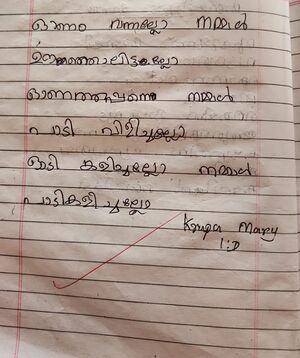 ഓണം വന്നല്ലോ നമ്മൾ
ഊഞ്ഞാലിട്ടല്ലോ
ഓണത്തപ്പനെ നമ്മൾ
പാടി വിളിച്ചല്ലോ
ഓടി കളിച്ചല്ലോ നമ്മൾ
പാടികളിച്ചല്ലോ
Krupa Mary
1:D